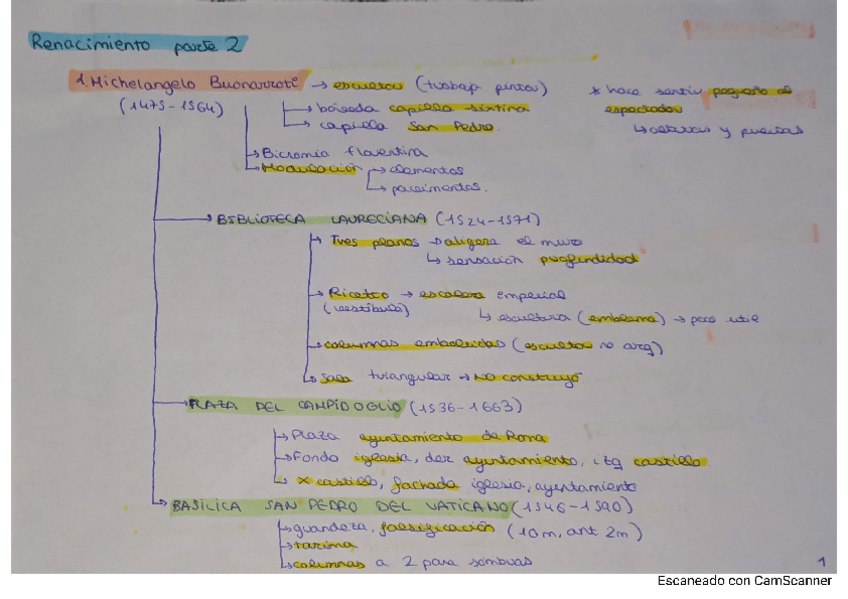 Renacimiento parte 2
1. Michelangelo Buonarrote → escultor (trabaja pintor)
(1475-1564)
* hace sentir pequeño al espectador
↳ altares y puertas
→ bóveda capilla sixtina
→ capilla San Pedro.
→ Bicromía florentina
→ Modulación → elementos
↳ pavimentos.
→ BIBLIOTECA LAURECIANA (1524-1571)
→ Tres planos → aligera el muro
↳ sensación profundidad
→ Ricetto → escalera emperial
(vestíbulo)
↳ escultura (emblema) → poco util
→ columnas embebidas (escultor no arq)
↳ Sala triangular → NO construyó
→ PLAZA DEL CAMPIDOGLIO (1536-1663)
→ Plaza ayuntamiento de Roma
→ Fondo iglesia, der ayuntamiento, izq castillo.
↳ X castillo, fachada iglesia, ayuntamiento
→ BASILICA SAN PEDRO DEL VATICANO (1546-1590)
→ grandeza, (10m, ant 2m)
→ tarima
↳ columnas a 2 para sombras
1
Escaneado con CamScanner